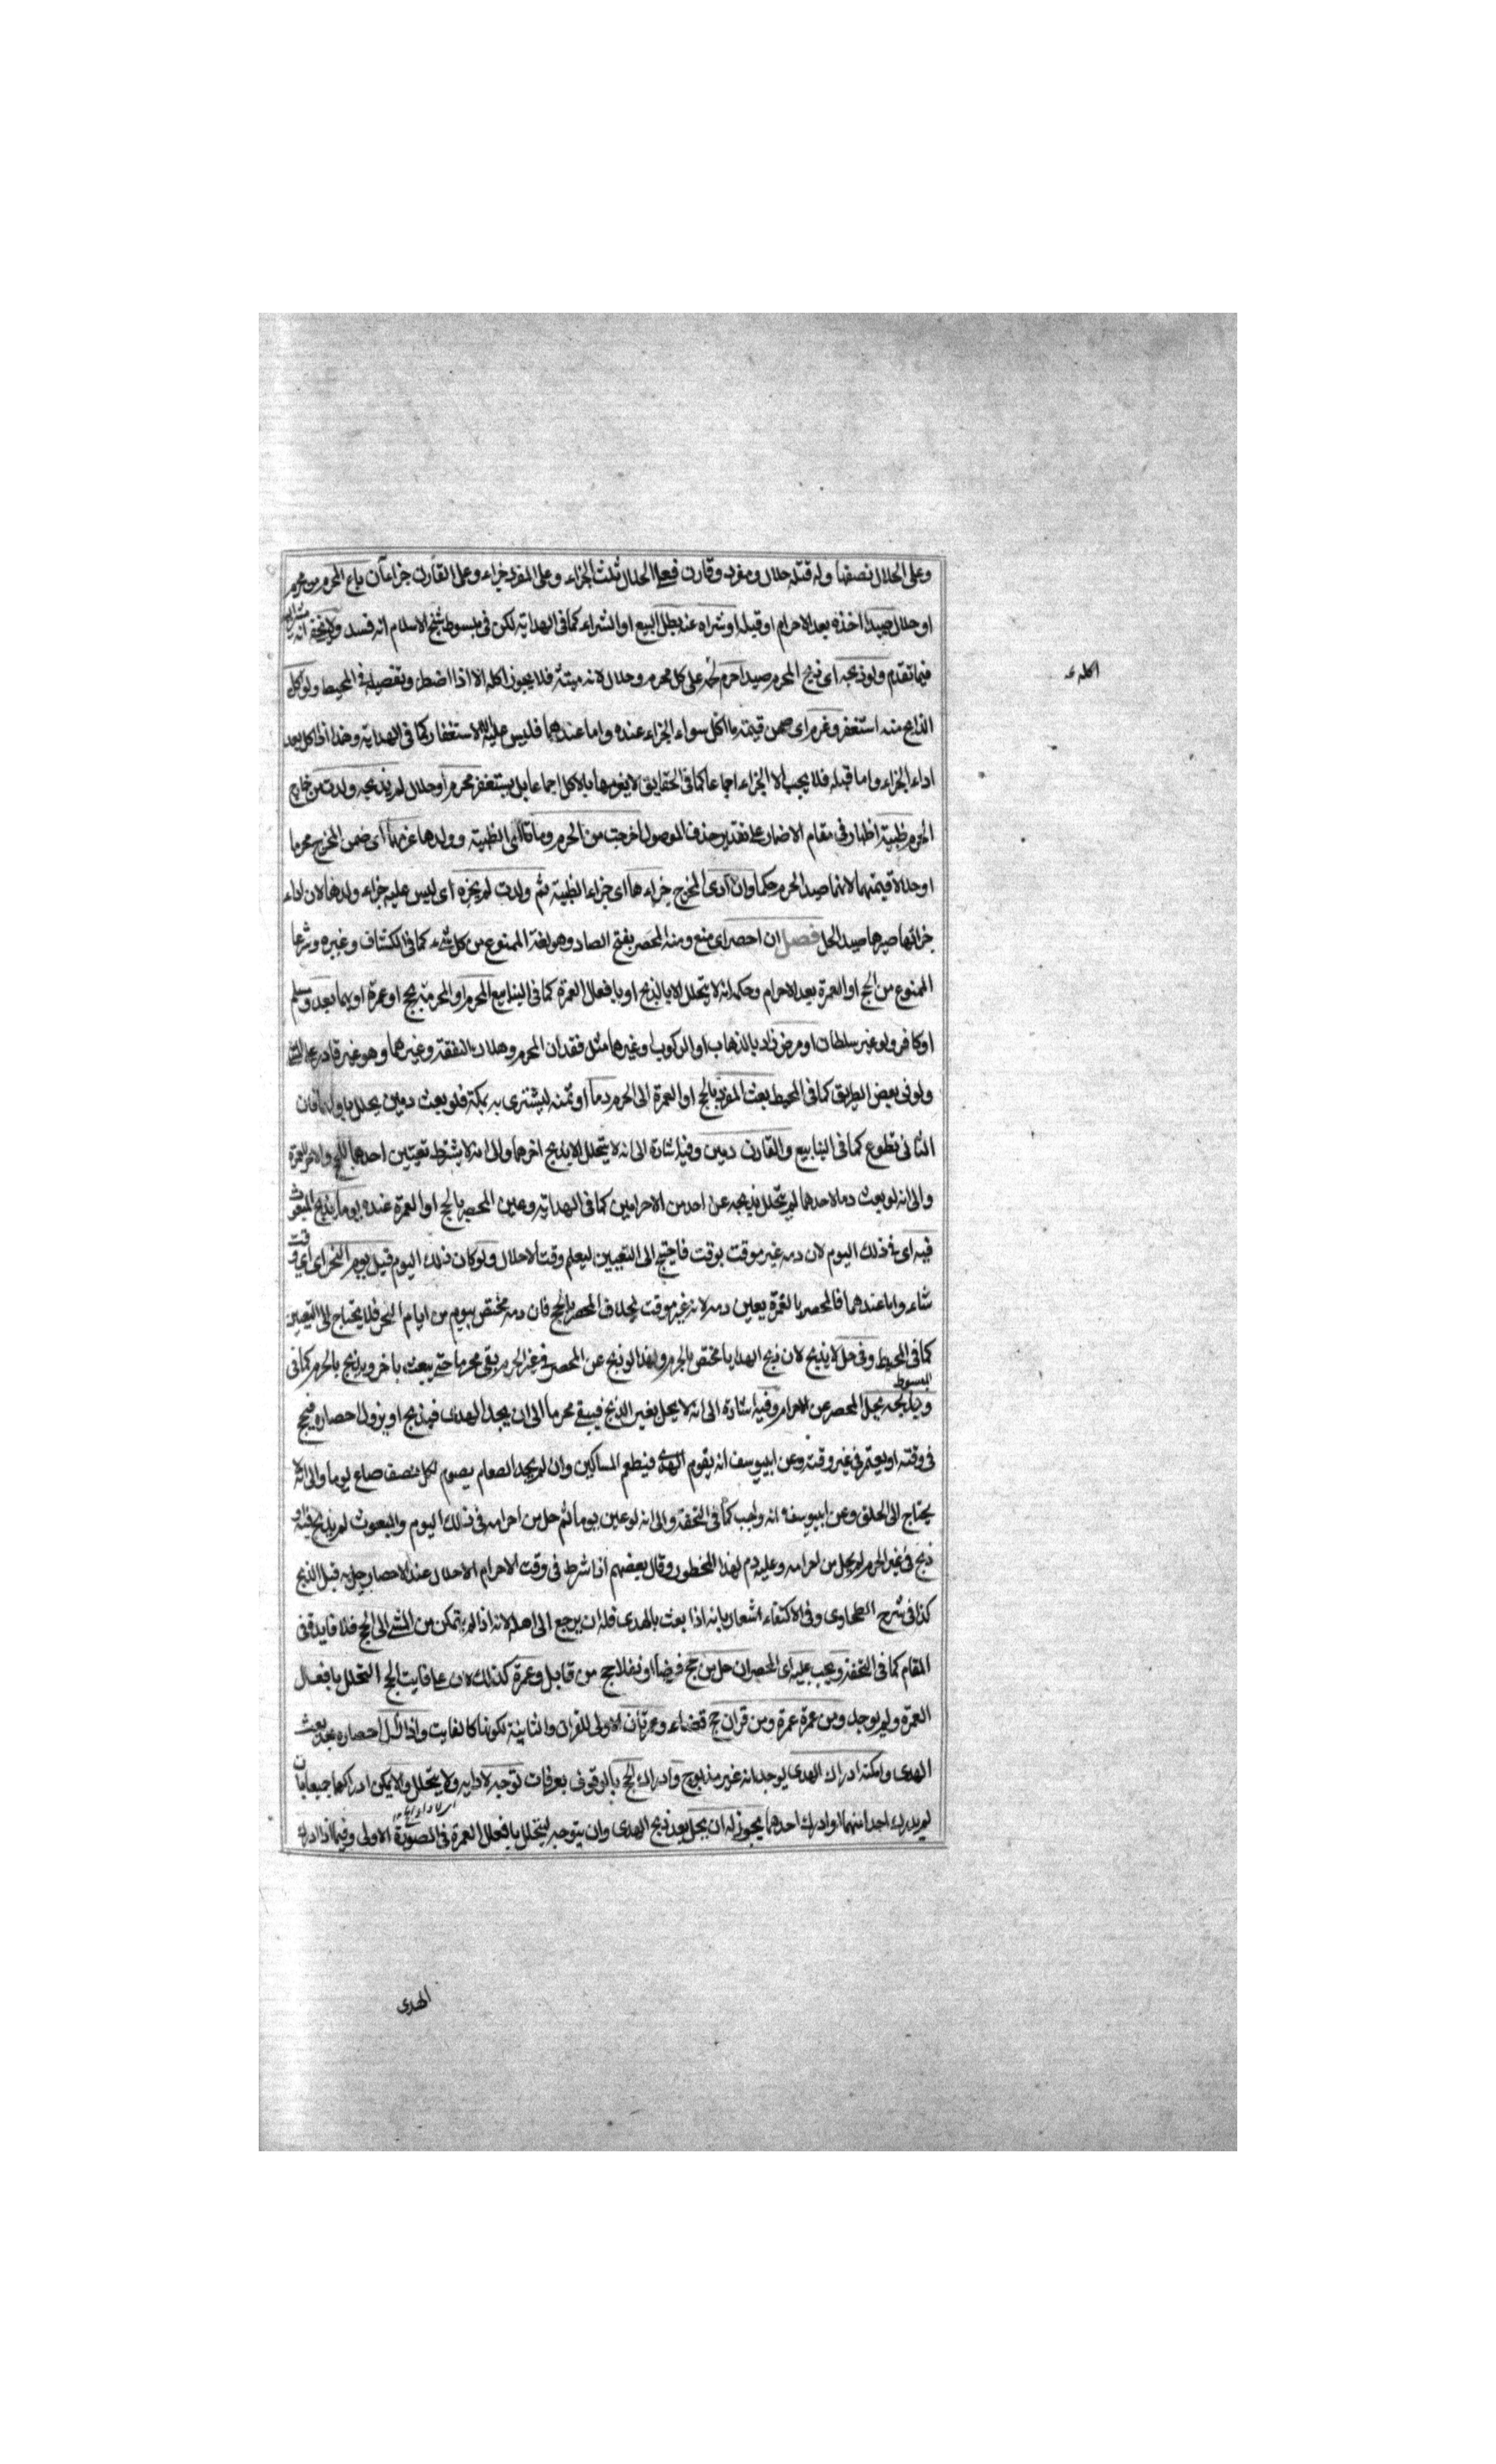 وعلى الحلال نصفها ولو قتله حلال ومفرد وقارن فعلى الحلال ثلث الجزاء وعلى المفرد جزاء وعلى القارن جزاءآن باع المحرم من محرم
او حلال صيدا اخذه بعد الاحرام او قبله او شراه عنه بطل البيع او الشراء كما فى الهداية لكن فى مبسوط شيخ الاسلام انه فسد
فيما تقدم ولو ذبحه اى ذبح المحرم صيدا حرم لحمه على كل محرم وحلال لانه ميتة فلا يجوز اكله الا اذا اضطر وتفصيله فى المحيط ولو اكل
اكله عه
الذابح منه استغفر وغرم اى ضمن قيمة ما اكل سواء الجزاء عنده واما عندهما فليس عليه الا الاستغفار كما فى الهداية وهذا اذا اكل بعد
اداء الجزاء واما قبله فلا يجب الا الجزاء اجماعا كما فى الحقايق لا يغرمها بالاكل اجماعا بل يستغفر محرم او حلال لم يذبحه ولدت من خارج
الحرم ظبية اظهار فى مقام الاضمار على تقدير حذف الموصول اخرجت من الحرم وماتا اى الظبية وولدها غرمهما اى ضمن المخرج محرما
او حلالا قيمتهما لانهما صيد الحرم حكما وان ادى المخرج جزاءها اى جزاء الظبية ثم ولدت لم يجزه اى ليس عليه جزاء ولدها لان اداء
جزائها صيرها صيد الحل فصل ان احصر اى منع ومنه المحصر بفتح الصاد وهو لغة الممنوع من كل شىء كما فى الكشاف وغيره وشرعا
الممنوع من الحج او العمرة بعد الاحرام وحكمه انه لا يتحلل الا بالذبح او بافعال العمرة كما فى الينابيع المحرم او المحرمة بحج او عمرة او بهما بعدو مسلم
او كافر ولو غير سلطان او مرض زاد بالذهاب او الركوب او غيرهما مثل فقدان المحرم وهلاك النفقة وغيرهما وهو غير قادر على المشى
ولو فى بعض الطريق كما فى المحيط بعث المفرد بالحج او العمرة الى الحرم دما او ثمنه ليشترى به بمكة فلو بعث دمين يحلل باولهما فان
الثانى تطوع كما فى الينابيع والقارن دمين وفيه اشارة الى انه لا يتحلل الا بذبح اخرهما والى انه لا يشترط تعيين احدهما للحج والاخر للعمرة
والى انه لو بعث دما لاحدهما لم يتحلل بذبحه عن احد من الاحرامين كما فى الهداية وعين المحصر بالحج او العمرة عنده يوما يذبح المبعوث
فيه اى فى ذلك اليوم لان دمه غير موقت بوقت فاحتيج الى التعيين ليعلم وقت الاحلال ولو كان ذلك اليوم قبل يوم النحر اى اى وقت
شاء واما عندهما فالمحصر بالعمرة يعين دمه لانه غير موقت بخلاف المحصر بالحج فان دمه مختص بيوم من ايام النحر فلا يحتاج الى التعيين
كما فى المحيط وفى حل لا يذبح لان ذبح الهدايا مختص بالحرم ولهذا لو ذبح عن المحصر فى غير الحرم بقى محرما حتى يبعث باخر ويذبح بالحرم كما فى
المبسوط
وبذبحه يحل المحصر عن الاحرام وفيه اشارة الى انه لا يحل بغير الذبح فيبقى محرما الى ان يجد الهدى فيذبح او يزول احصاره فيحج
فى وقته او يعتمر فى غير وقته وعن ابييوسف انه يقوم الهدى فيطعم المساكين وان لم يجد الطعام يصوم لكل نصف صاع يوما والى انه لا
يحتاج الى الحلق وعن ابييوسف انه واجب كما فى التحفة والى انه لو عين يوما ثم حل من احرامه فى ذلك اليوم والمبعوث لم يذبح فيه او
ذبح فى غير الحرم لم يحل من احرامه وعليه دم لهذا المحظور وقال بعضهم اذا شرط فى وقت الاحرام الاحلال عند الاحصار يحل به قبل الذبح
كذا فى شرح الطحاوى وفى الاكتفاء اشعار بانه اذا بعث بالهدى فله ان يرجع الى اهله لانه اذا لم يتمكن من المشى الى الحج فلا فايدة فى
المقام كما فى التحفة ويجب عليه اى المحصر ان حل من حج فرضا او نفلا حج من قابل وعمرة كذلك لان على فايت الحج التحلل بافعال
العمرة ولم يوجد ومن عمرة عمرة ومن قران حج قضاء وعمرتان الاولى للقران والثانية لكونه كالفايت واذا زال احصاره بعد بعث
الهدى وامكنه ادراك الهدى يوجد انه غير مذبوح وادراك الحج بالوقوف بعرفات توجه لادايه ولا يتحلل والا يمكن ادراكهما جميعا بان
لم يدرك احدا منهما او ادرك احدهما يجوز له ان يحل بعد ذبح الهدى وان يتوجه ليتحلل بافعال العمرة فى الصورة الاولى وفيما اذا ادرك
الهدى